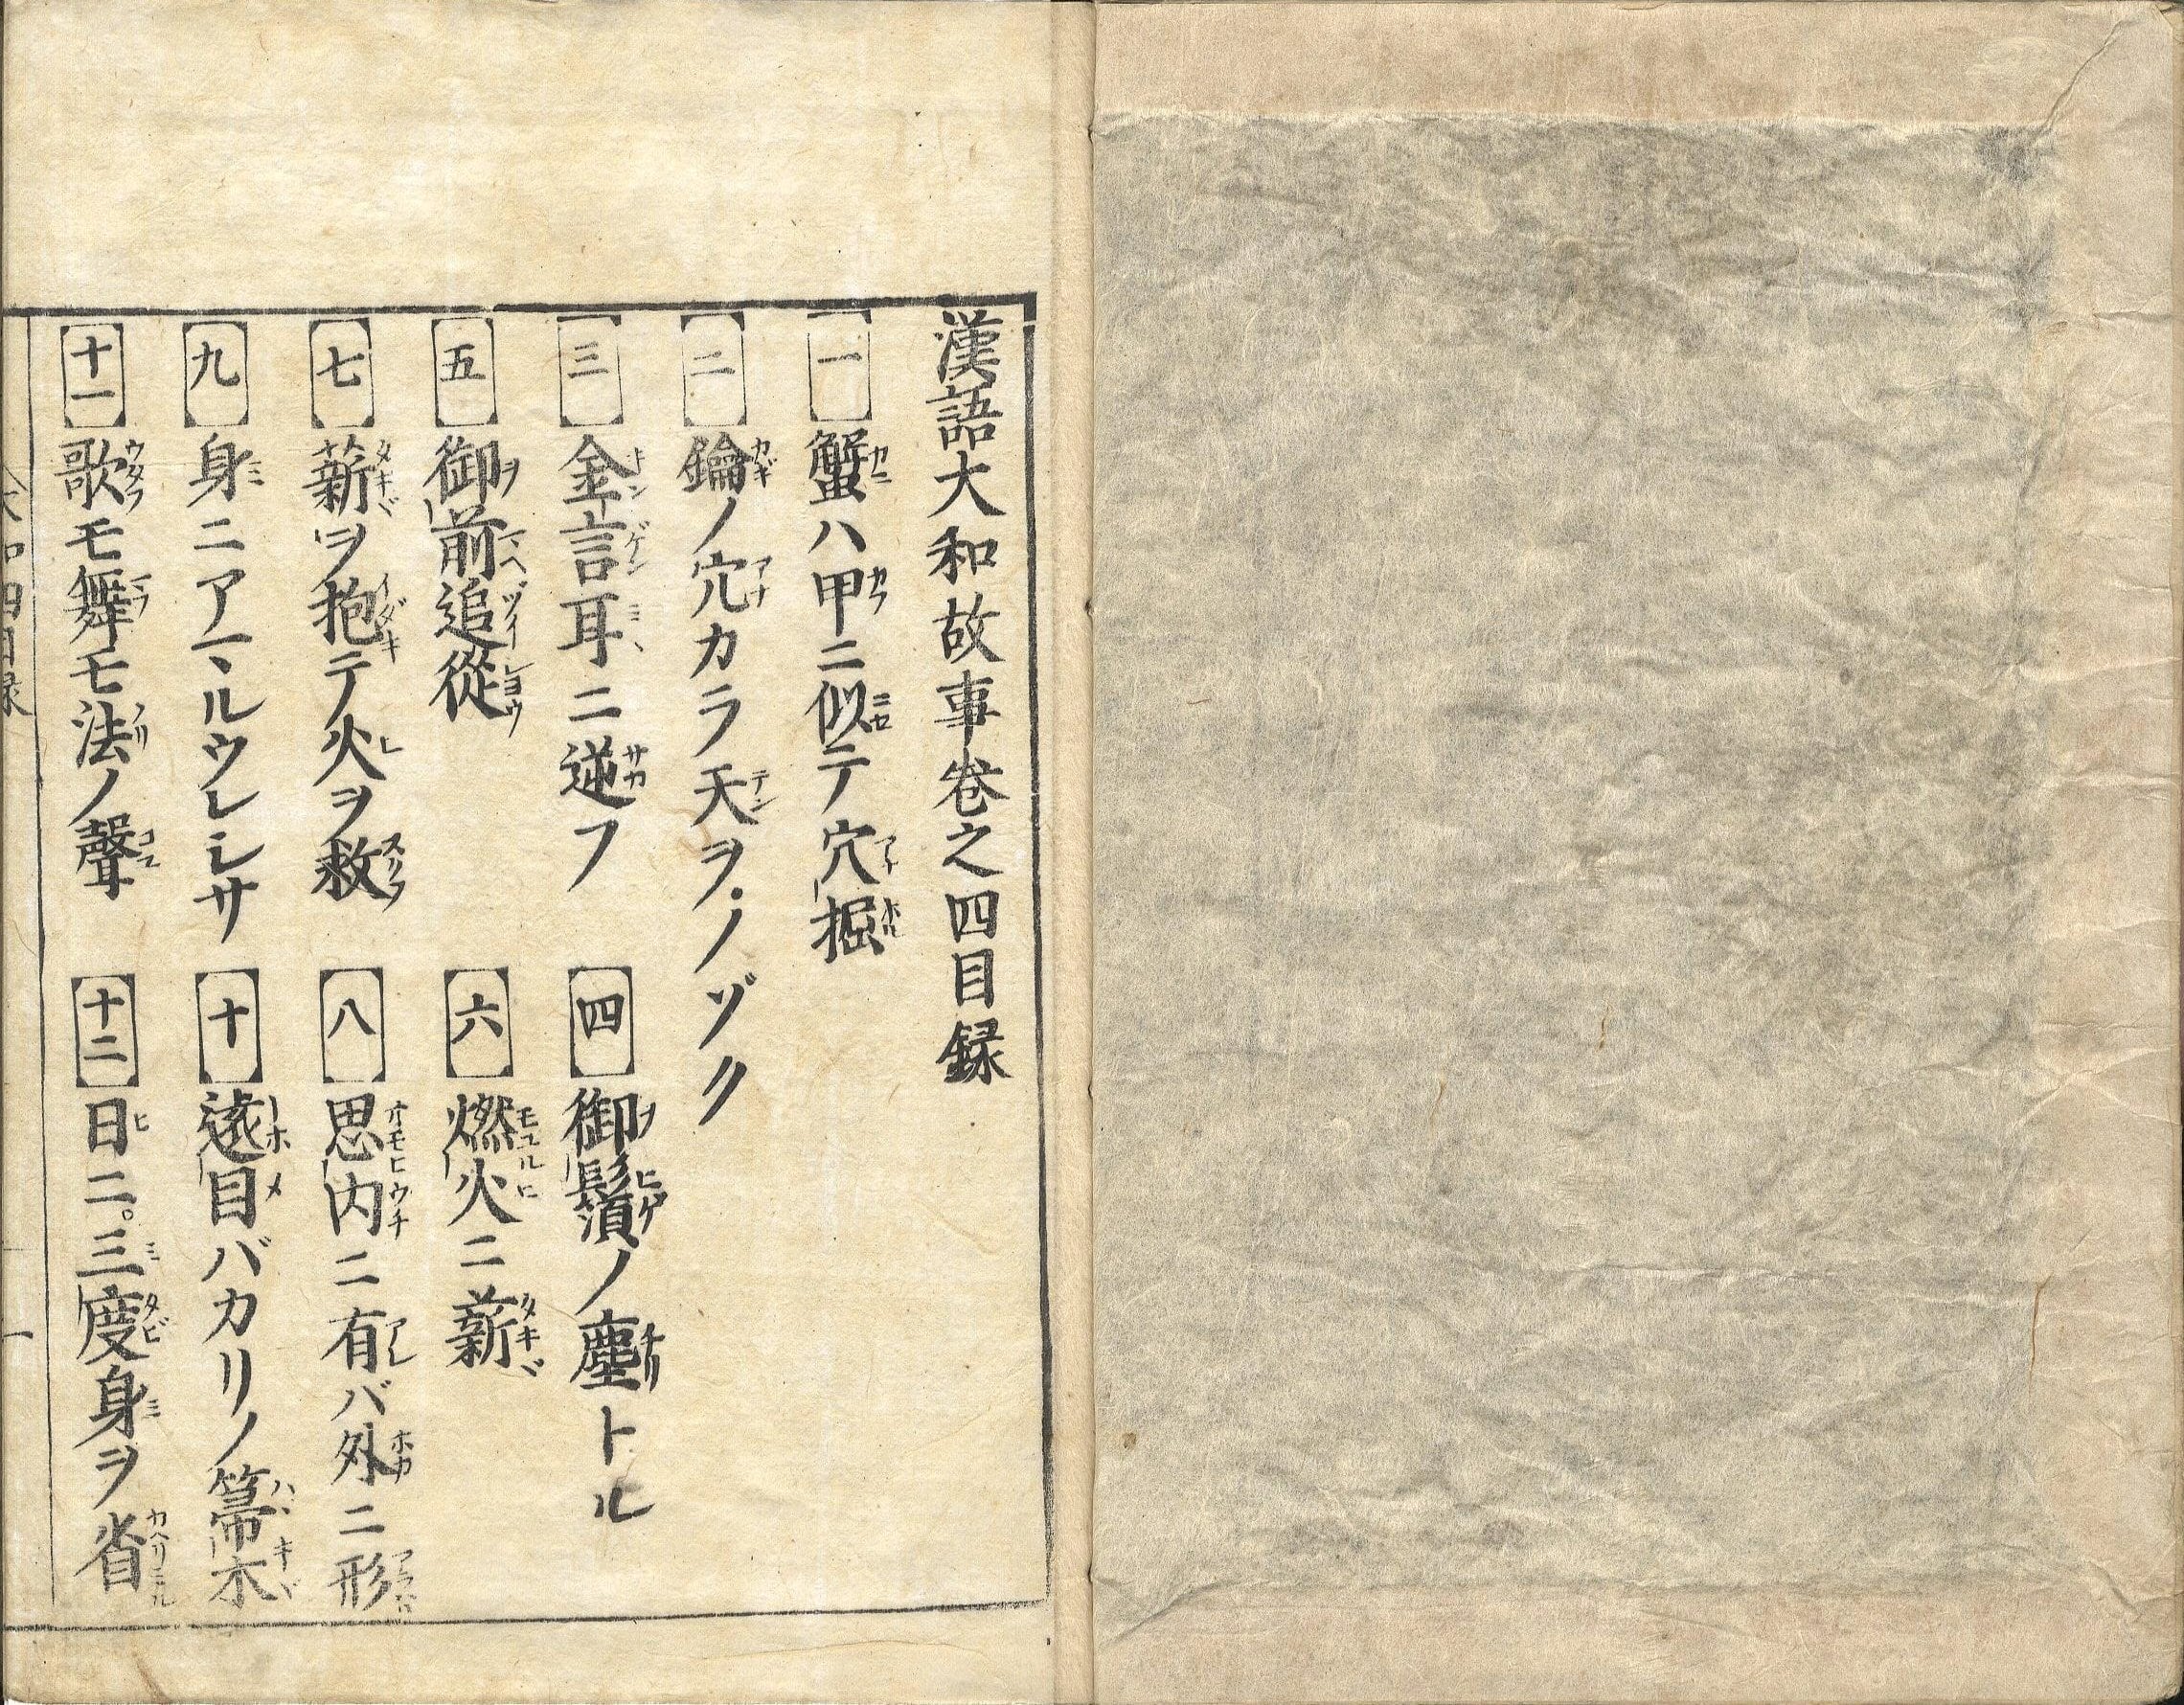 漢語大和故事卷之四目録
一 蟹ハ甲ニ似テ穴掘
二 鑰ノ穴カラ天ヲノゾク
三 金言耳ニ逆フ
四 御鬚ノ塵トル
五 御前追從
六 燃火ニ薪
七 薪ヲ抱テ火ヲ救
八 思内ニ有バ外ニ形
九 身ニアマルウレシサ
十 遠目バカリノ箒木
十一 歌モ舞モ法ノ聲
十二 日ニ三度身ヲ省